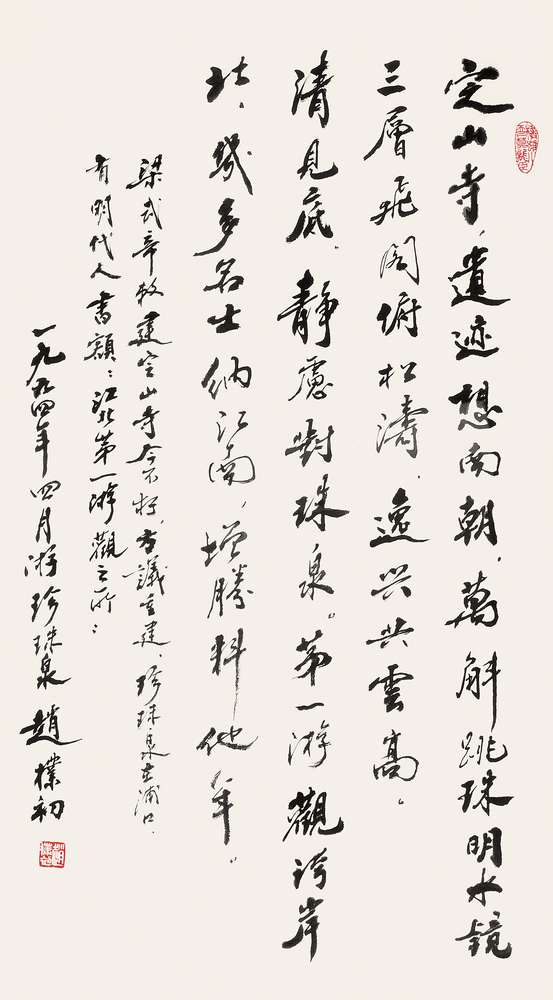 定山寺，遺迹想南朝，萬斛跳珠明水鏡
三層飛閣俯松濤，逸興共雲高。
清見底，靜慮對珠泉。第一游觀誇岸
北，幾多名士納江南，增勝料他年。
梁武帝敕建定山寺今不存，方議重建，珍珠泉在浦口，
有明代人書額：江北第一游觀之所：
一九九四年四月游珍珠泉 趙樸初